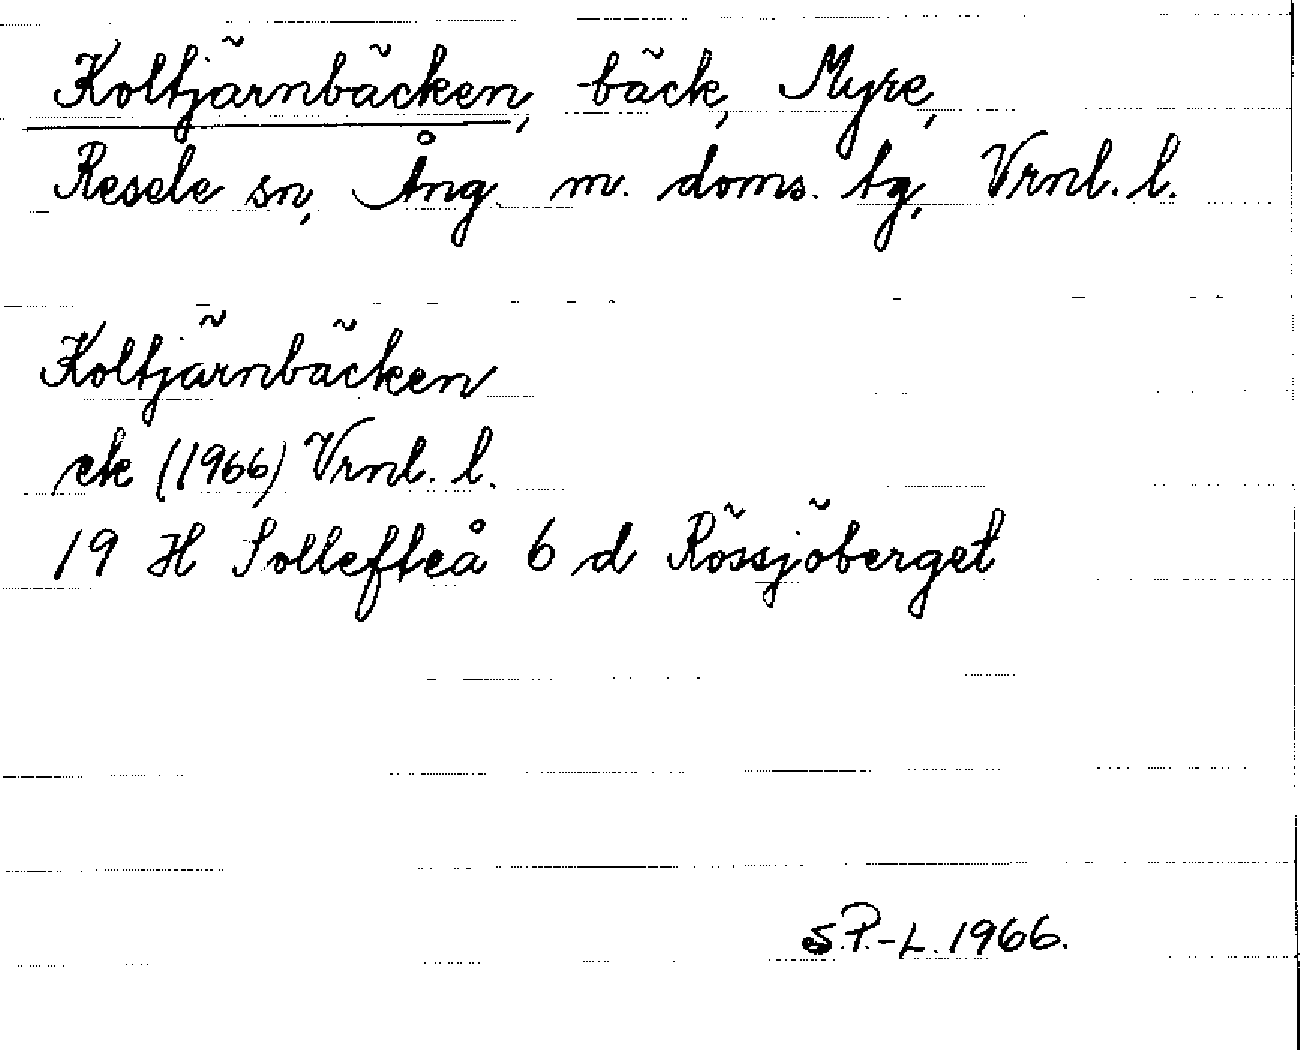 Koltjärnbäcken, bäck, Myre,
Resele sn, Ång. m. doms. tg, Vrnl. l.
Koltjärnbäcken
ek (1966) Vrnl. l.
19 H Sollefteå 6 d Rössjöberget
S.P.-L. 1966.